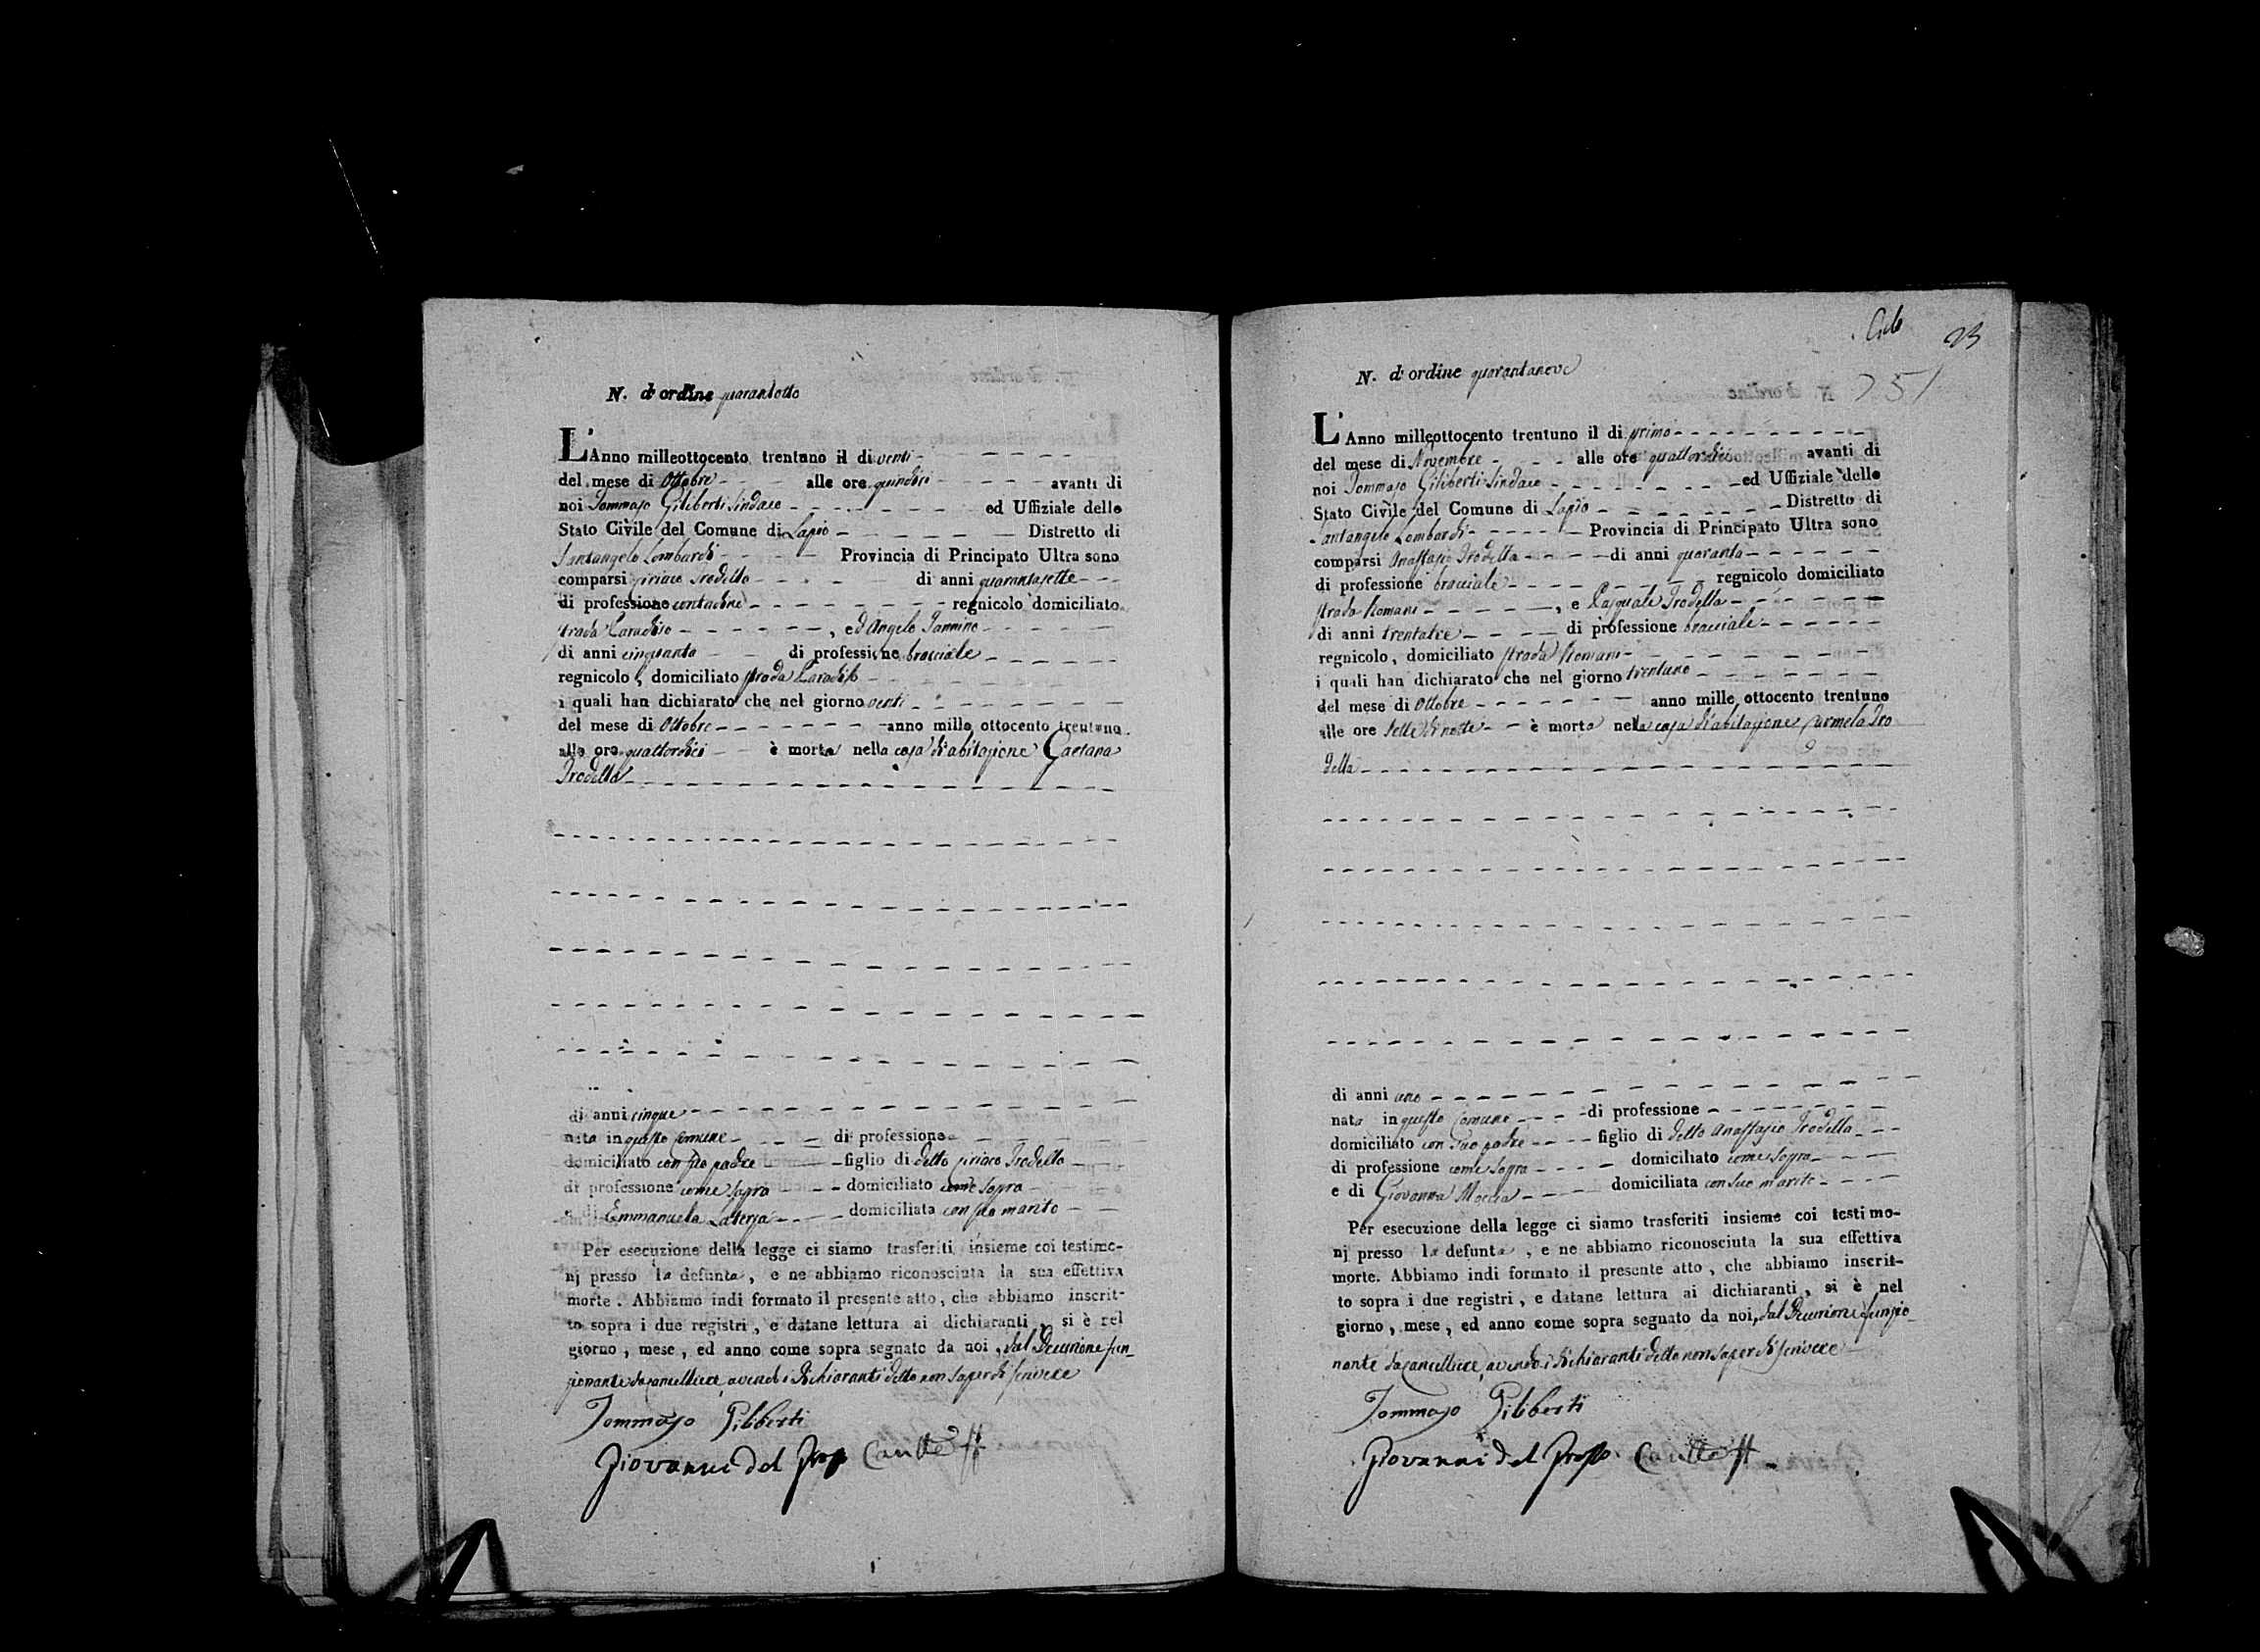 N. d'ordine quarantotto
L'Anno milleottocento trentuno il di venti
del mese di Ottobre alle ore quindici avanti di
noi Tommaso Giliberti Sindaco ed Uffiziale dello
Stato Civile del Comune di Lapio Distretto di
Santangelo Lombardi Provincia di Principato Ultra sono
comparsi Ciriaco Trodella di anni quarantasette
di professione contadino regnicolo domiciliato
strada Paradiso, ed Angelo Iannino
di anni cinquanta di professione bracciale
regnicolo, domiciliato strada Paradiso
i quali han dichiarato che nel giorno venti
del mese di Ottobre anno mille ottocento trentuno
alle ore quattordici è morta nella casa di abitazione Gaetana
Trodella
di anni cinque
nata in questo Comune di professione
domiciliato con suo padre figlio di detto Ciriaco Trodella
di professione come sopra domiciliato come sopra
e di Emmanuela domiciliata con suo marito
Per esecuzione della legge ci siamo trasferiti insieme coi testimo-
nj presso la defunta, e ne abbiamo riconosciuta la sua effettiva
morte. Abbiamo indi formato il presente atto, che abbiamo inscrit-
to sopra i due registri, e datane lettura ai dichiaranti, si è nel
giorno, mese, ed anno come sopra segnato da noi, dal Decurione fun-
zionante da Cancelliere, avendo i dichiaranti detto non saper di scrivere
Tommaso Giliberti
Giovanni del
23
251
N. d'ordine quarantanove
L'Anno milleottocento trentuno il di primo
del mese di Novembre alle ore quattordici avanti di
noi Tommaso Giliberti Sindaco ed Uffiziale dello
Stato Civile del Comune di Lapio Distretto di
Santangelo Lombardi Provincia di Principato Ultra sono
comparsi Anastasio Trodella di anni quaranta
di professione bracciale regnicolo domiciliato
strada Romani, e Pasquale Trodella
di anni trentatre di professione bracciale
regnicolo, domiciliato strada Romani
i quali han dichiarato che nel giorno trentuno
del mese di Ottobre anno mille ottocento trentuno
alle ore sette di notte è morta nella casa di abitazione Carmela Tro
della
di anni uno
nata in questo Comune di professione
domiciliato con suo padre figlio di detto Anastasio Trodella
di professione come sopra domiciliato come sopra
e di Giovanna Moccia domiciliata con suo marito
Per esecuzione della legge ci siamo trasferiti insieme coi testimo-
nj presso la defunta, e ne abbiamo riconosciuta la sua effettiva
morte. Abbiamo indi formato il presente atto, che abbiamo inscrit-
to sopra i due registri, e datane lettura ai dichiaranti, si è nel
giorno, mese, ed anno come sopra segnato da noi, dal Decurione funzio-
nante da Cancelliere, avendo i dichiaranti detto non saper di scrivere
Tommaso Giliberti
Giovanni del